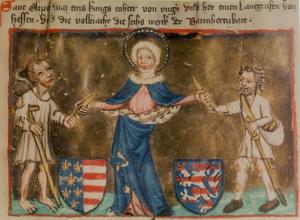 Sant Elizabet was eins kungs tohter von ungern und het einen Langgrafen von
hessen. Und die volbraht die sehs werk der Barmhertzikait.